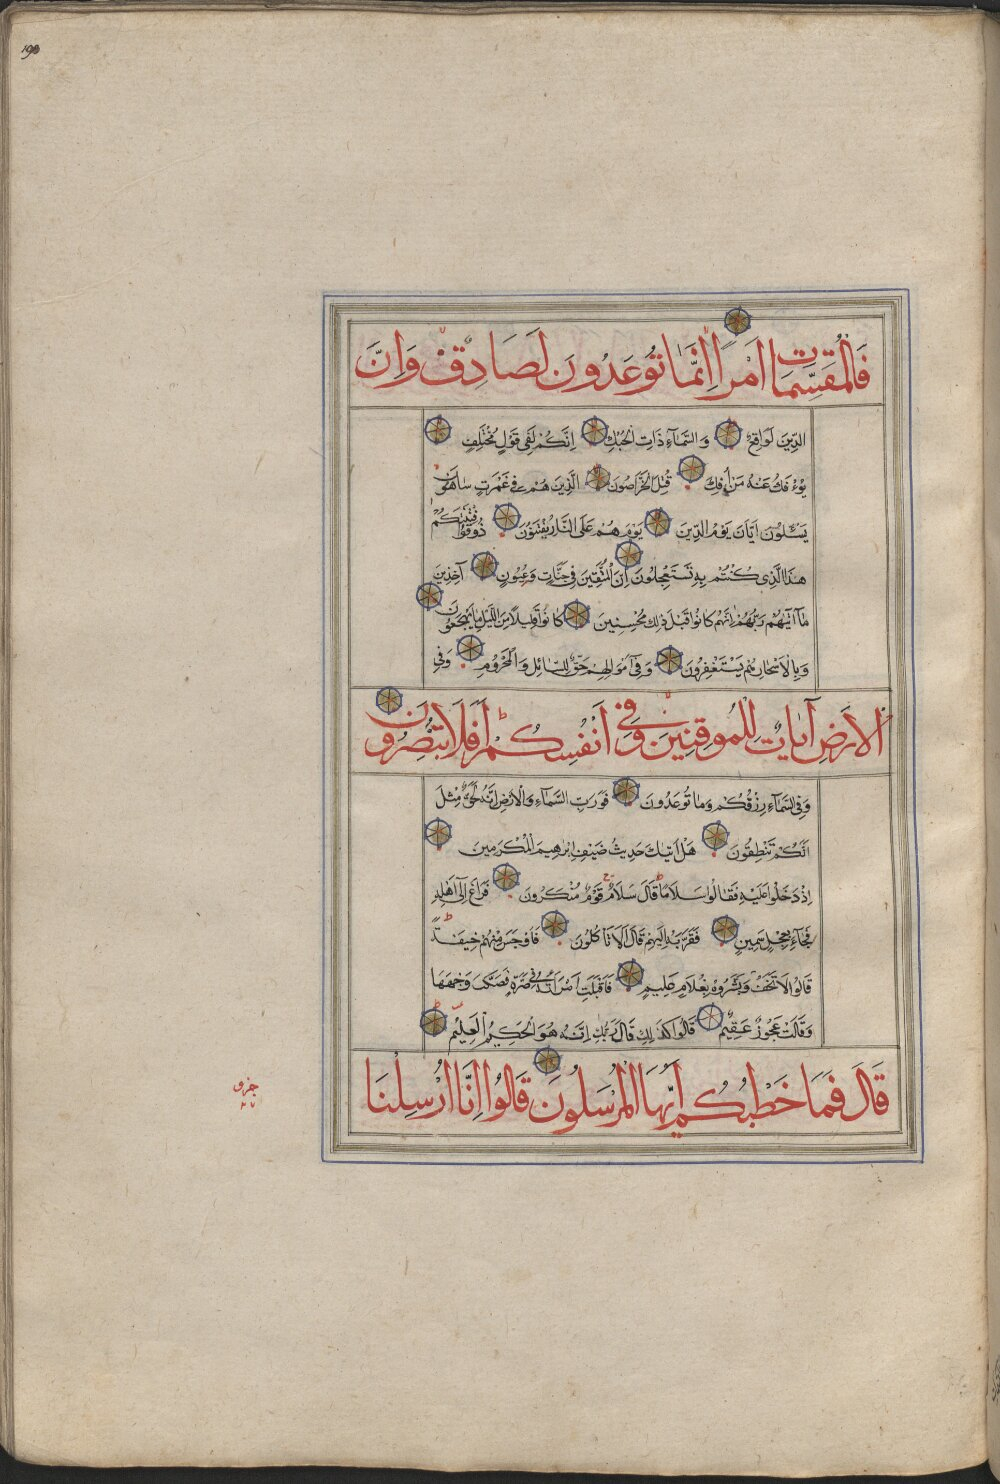 فَالْمُقَسِّمَاتِ اَمْرًا اِنَّمَا تُوعَدُونَ لَصَادِقٌ وَاِنَّ
الدِّينَ لَوَاقِعٌ وَالسَّمَآءِ ذَاتِ الْحُبُكِ اِنَّكُمْ لَفِى قَوْلٍ مُخْتَلِفٍ
يُؤْفَكُ عَنْهُ مَنْ اُفِكَ قُتِلَ الْخَرَّاصُونَ الَّذِينَ هُمْ فِى غَمْرَةٍ سَاهُونَ
يَسْـَٔلُونَ اَيَّانَ يَوْمُ الدِّينِ يَوْمَ هُمْ عَلَى النَّارِ يُفْتَنُونَ ذُوقُوا فِتْنَتَكُمْ
هٰذَا الَّذِى كُنْتُمْ بِهِ تَسْتَعْجِلُونَ اِنَّ الْمُتَّقِينَ فِى جَنَّاتٍ وَعُيُونٍ آخِذِينَ
مَآ اٰتٰيهُمْ رَبُّهُمْ اِنَّهُمْ كَانُوا قَبْلَ ذٰلِكَ مُحْسِنِينَ كَانُوا قَلِيلًا مِنَ اللَّيْلِ مَا يَهْجَعُونَ
وَبِالْاَسْحَارِ هُمْ يَسْتَغْفِرُونَ وَفِىٓ اَمْوَالِهِمْ حَقٌّ لِلسَّآئِلِ وَالْمَحْرُومِ وَفِى
الْاَرْضِ آيَاتٌ لِلْمُوقِنِينَ وَفِىٓ اَنْفُسِكُمْ اَفَلَا تُبْصِرُونَ
وَفِى السَّمَآءِ رِزْقُكُمْ وَمَا تُوعَدُونَ فَوَرَبِّ السَّمَآءِ وَالْاَرْضِ اِنَّهُ لَحَقٌّ مِثْلَ
اَنَّكُمْ تَنْطِقُونَ هَلْ اَتٰيكَ حَدِيثُ ضَيْفِ اِبْرٰهِيمَ الْمُكْرَمِينَ
اِذْ دَخَلُوا عَلَيْهِ فَقَالُوا سَلَامًا قَالَ سَلَامٌ قَوْمٌ مُنْكَرُونَ فَرَاغَ اِلٰٓى اَهْلِهِ
فَجَآءَ بِعِجْلٍ سَمِينٍ فَقَرَّبَهُ اِلَيْهِمْ قَالَ اَلَا تَأْكُلُونَ فَاَوْجَسَ مِنْهُمْ خِيفَةً
قَالُوا لَا تَخَفْ وَبَشَّرُوهُ بِغُلَامٍ عَلِيمٍ فَاَقْبَلَتِ امْرَاَتُهُ فِى صَرَّةٍ فَصَكَّتْ وَجْهَهَا
وَقَالَتْ عَجُوزٌ عَقِيمٌ قَالُوا كَذٰلِكِ قَالَ رَبُّكِ اِنَّهُ هُوَ الْحَكِيمُ الْعَلِيمُ
قَالَ فَمَا خَطْبُكُمْ اَيُّهَا الْمُرْسَلُونَ قَالُوا اِنَّا اُرْسِلْنَا
جزو
٢٧